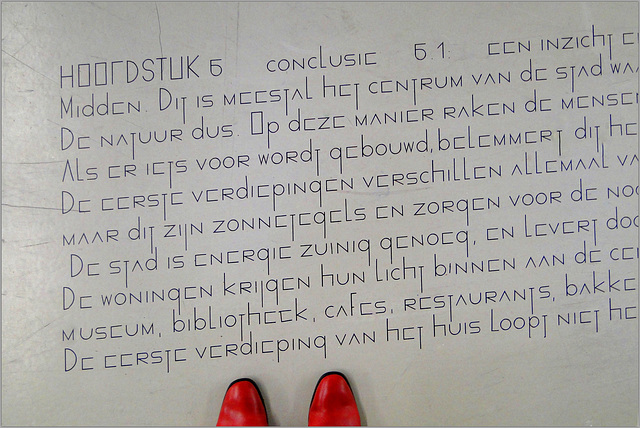 HOOFDSTUK 6 conclusie 6.1. Een inzicht
Midden. Dit is meestal het centrum van de stad
De natuur dus. Op deze manier raken de
Als er iets voor wordt gebouwd, belemmert dit
De eerste verdiepingen verschillen allemaal
maar dit zijn zonnetegels en zorgen voor de
De stad is energie zuinig genoeg, en levert
De woningen krijgen hun licht binnen aan de
museum, bibliotheek, cafes, restaurants,
De eerste verdieping van het huis loopt niet